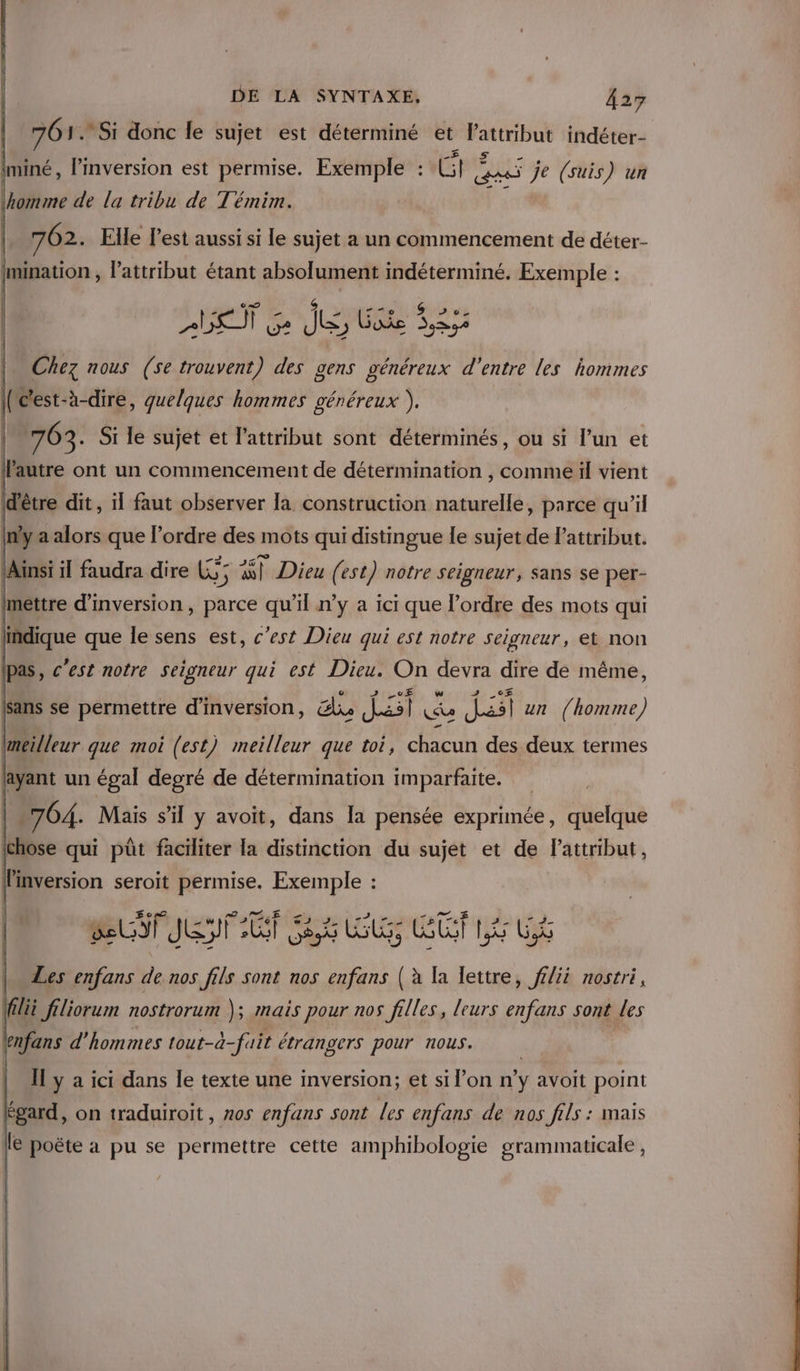 DE LA SYNTAXE, 427
761. Si donc le sujet est déterminé et l'attribut indéter-
miné, l'inversion est permise. Exemple : تَمِيمِىٌّ أَنَا je (suis) un
homme de la tribu de Témim.
762. Elle l'est aussi si le sujet a un commencement de déter-
mination, l'attribut étant absolument indéterminé. Exemple :
مَوْجُودٌ عِنْدَنَا رِجَالٌ مِنَ ٱلْكِرَامِ
Chez nous (se trouvent) des gens généreux d'entre les hommes
(c'est-à-dire, quelques hommes généreux).
763. Si le sujet et l'attribut sont déterminés, ou si l'un et
l'autre ont un commencement de détermination, comme il vient
d'être dit, il faut observer la construction naturelle, parce qu'il
n'y a alors que l'ordre des mots qui distingue le sujet de l'attribut.
Ainsi il faudra dire ٱللّٰهُ رَبُّنَا Dieu (est) notre seigneur, sans se per-
mettre d'inversion, parce qu'il n'y a ici que l'ordre des mots qui
indique que le sens est, c'est Dieu qui est notre seigneur, et non
pas, c'est notre seigneur qui est Dieu. On devra dire de même,
sans se permettre d'inversion, أَفْضَلُ مِنِّى أَفْضَلُ مِنْكَ un (homme)
meilleur que moi (est) meilleur que toi, chacun des deux termes
ayant un égal degré de détermination imparfaite.
764. Mais s'il y avoit, dans la pensée exprimée, quelque
chose qui pût faciliter la distinction du sujet et de l'attribut,
l'inversion seroit permise. Exemple :
بَنُونَا بَنُو أَبْنَآئِنَا وَبَنَاتُنَا بَنُوهُنَّ أَبْنَآءُ ٱلرِّجَالِ ٱلْأَبَاعِدِ
Les enfans de nos fils sont nos enfans (à la lettre, filii nostri,
filii filiorum nostrorum); mais pour nos filles, leurs enfans sont les
enfans d'hommes tout-à-fait étrangers pour nous.
Il y a ici dans le texte une inversion; et si l'on n'y avoit point
égard, on traduiroit, nos enfans sont les enfans de nos fils : mais
le poëte a pu se permettre cette amphibologie grammaticale,